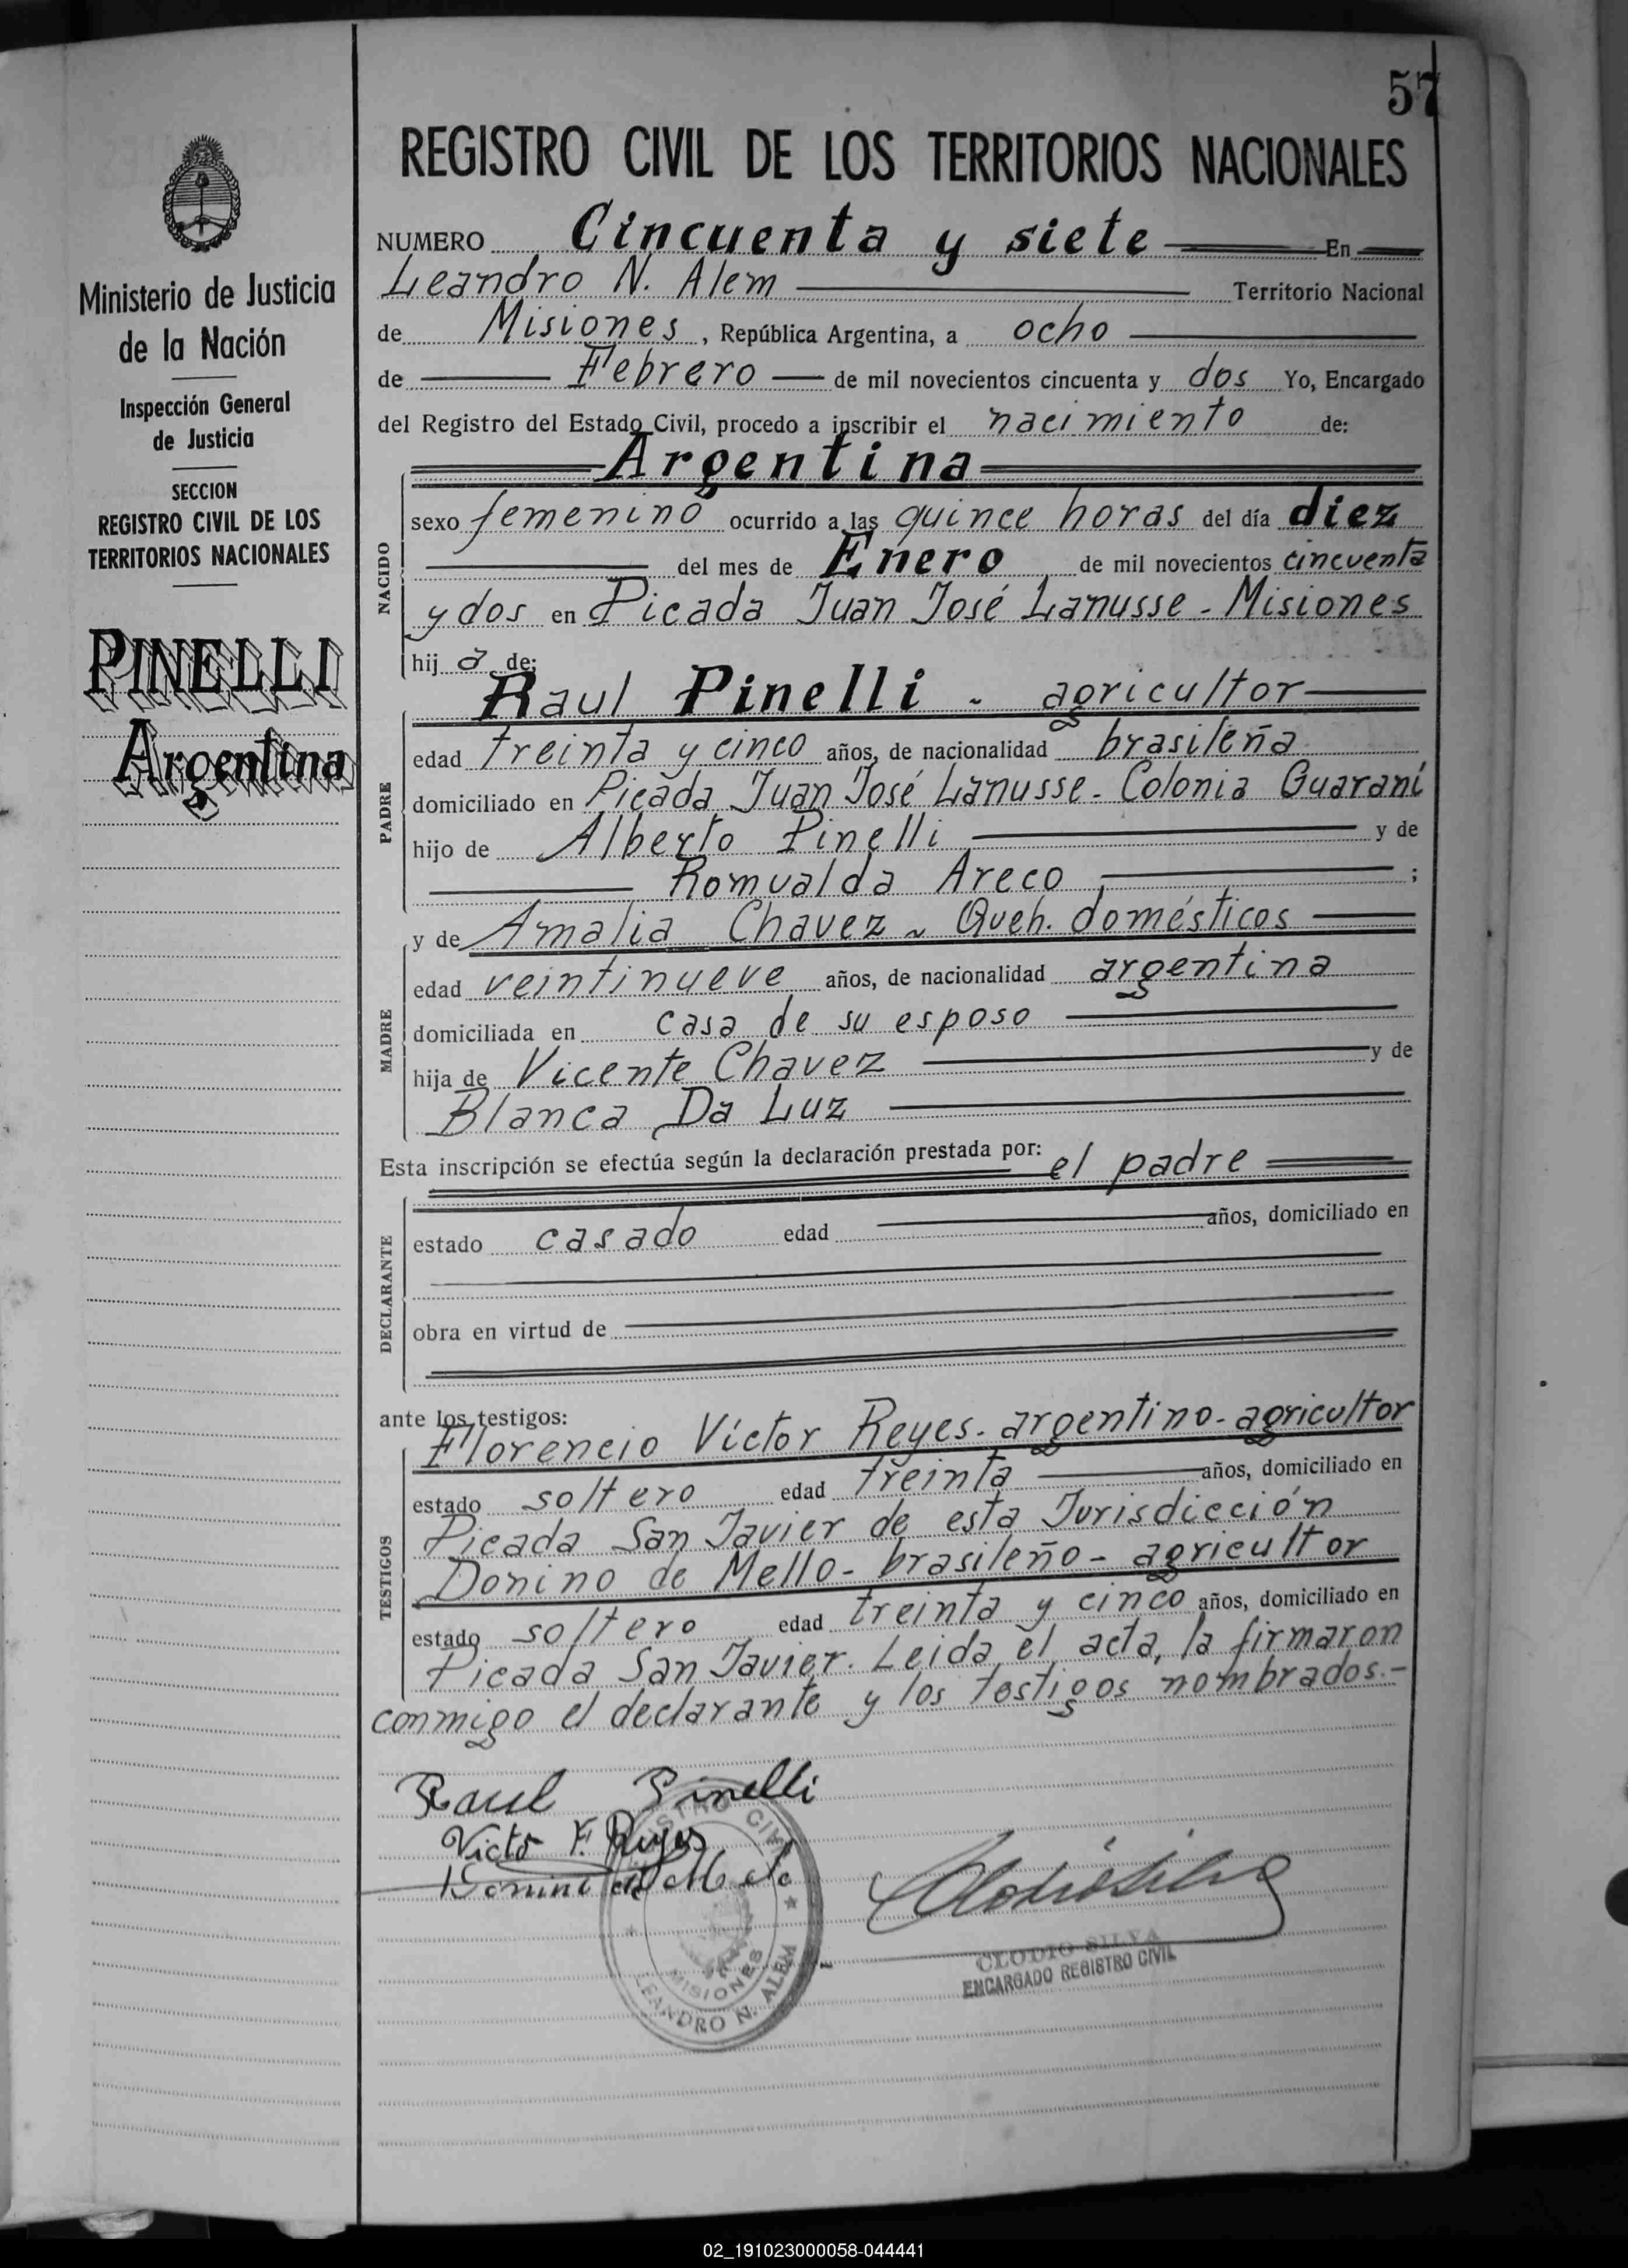 57
REGISTRO CIVIL DE LOS TERRITORIOS NACIONALES
Ministerio de Justicia
de la Nación
Inspección General
de Justicia
SECCION
REGISTRO CIVIL DE LOS
TERRITORIOS NACIONALES
PINELLI
Argentina
NUMERO Cincuenta y siete En
Leandro N. Alem Territorio Nacional
de Misiones, República Argentina, a ocho
de Febrero de mil novecientos cincuenta y dos Yo, Encargado
del Registro del Estado Civil, procedo a inscribir el nacimiento de:
NACIDO
Argentina
sexo femenino ocurrido a las quince horas del día diez
del mes de Enero de mil novecientos cincuenta
y dos en Picada Juan José Lanusse - Misiones
hija de:
PADRE
Raul Pinelli - agricultor
edad treinta y cinco años, de nacionalidad brasileña
domiciliado en Picada Juan José Lanusse - Colonia Guaraní
hijo de Alberto Pinelli y de
Romualda Areco ;
MADRE
y de Amalia Chavez ~ Queh. domésticos
edad veintinueve años, de nacionalidad argentina
domiciliada en casa de su esposo
hija de Vicente Chavez y de
Blanca Da Luz
Esta inscripción se efectúa según la declaración prestada por: el padre
DECLARANTE
estado casado edad años, domiciliado en
obra en virtud de
ante los testigos:
TESTIGOS
Florencio Víctor Reyes - argentino - agricultor
estado soltero edad treinta años, domiciliado en
Picada San Javier de esta Jurisdicción
Donino de Mello - brasileño - agricultor
estado soltero edad treinta y cinco años, domiciliado en
Picada San Javier. Leida el acta, la firmaron
conmigo el declarante y los testigos nombrados.-
Raul Pinelli
Victo F. Reyes
REGISTRO CIVIL
MISIONES
LEANDRO N. ALEM
CLODIO SILVA
ENCARGADO REGISTRO CIVIL
02_191023000058-044441